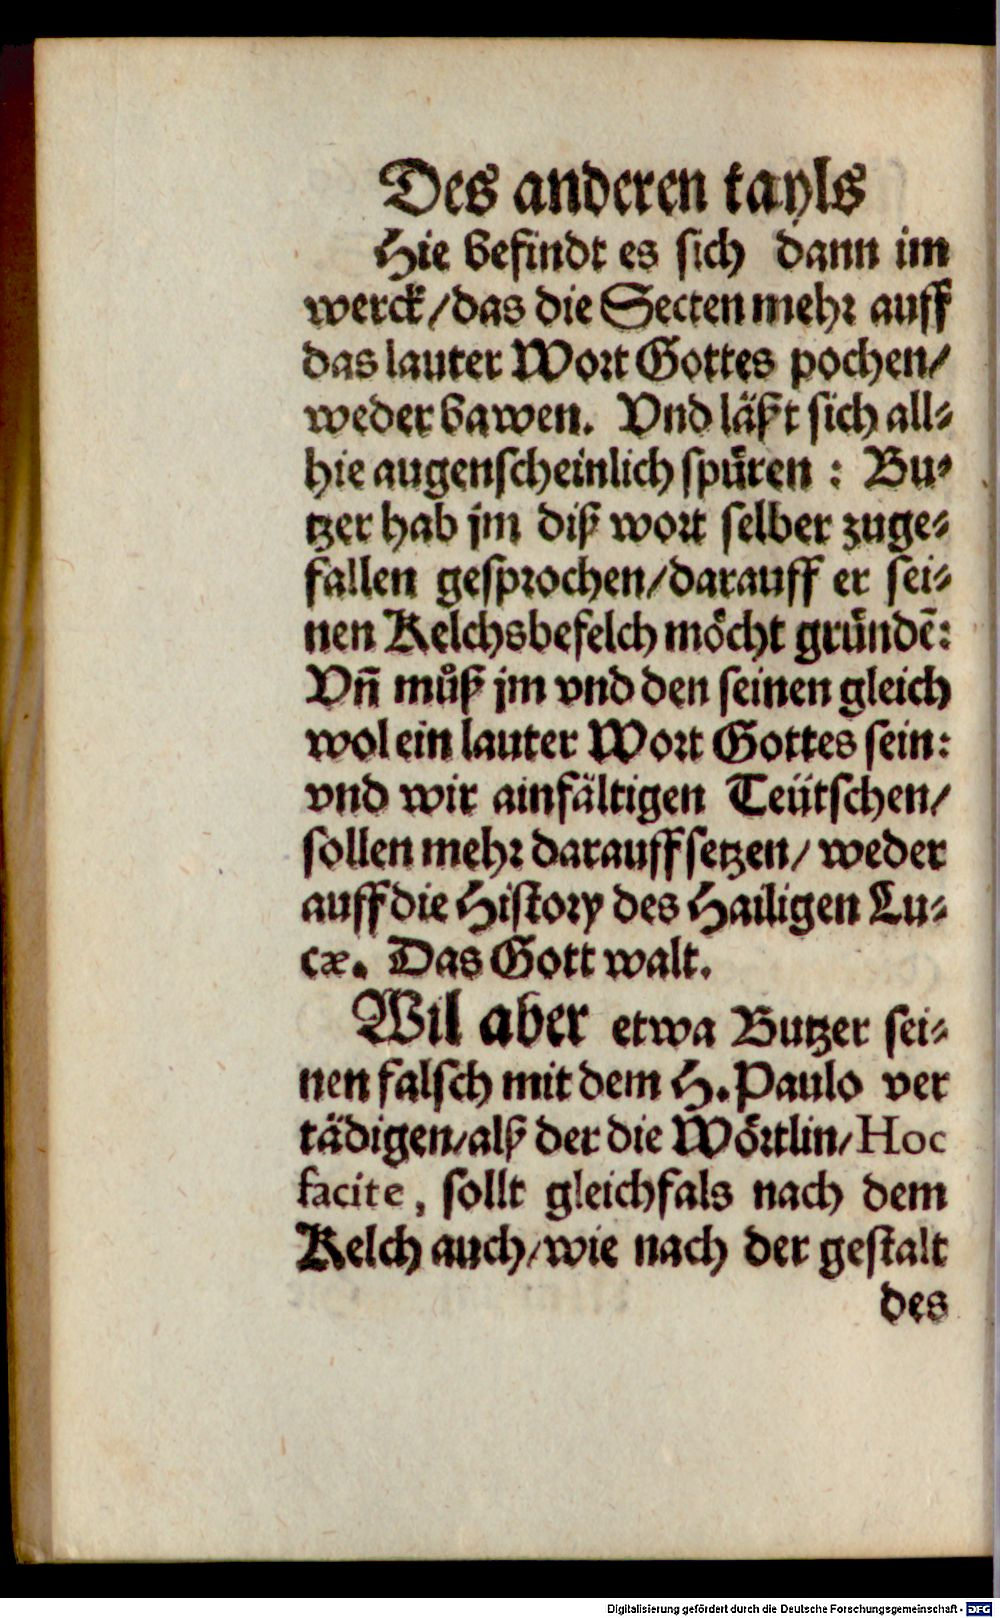 Des anderen tayls
Hie befindt es sich dann im
werck/das die Secten mehr auff
das lauter Wort Gottes pochen/
weder bawen. Vnd läßt sich all⸗
hie augenscheinlich spüren : Bu⸗
tzer hab jm diß wort selber zuge⸗
fallen gesprochen/darauff er sei⸗
nen Kelchsbefelch möcht gründē:
Vn̄ můß jm vnd den seinen gleich
wol ein lauter Wort Gottes sein:
vnd wir ainfältigen Teütschen/
sollen mehr darauff setzen/ weder
auff die History des Hailigen Lu⸗
cæ. Das Gott walt.
Wil aber etwa Butzer sei⸗
nen falsch mit dem H. Paulo ver
tädigen/alß der die Wörtlin/Hoc
facite, sollt gleichfals nach dem
Kelch auch/wie nach der gestalt
des
Digitalisierung gefördert durch die Deutsche Forschungsgemeinschaft - DFG